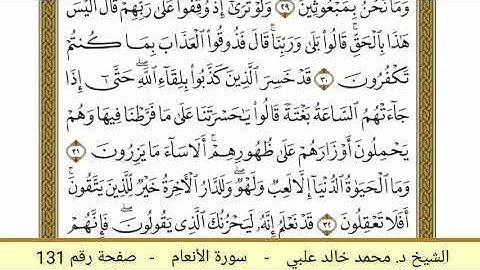 وَمَا نَحْنُ بِمَبْعُوثِينَ ٢٩ وَلَوْ تَرَىٰٓ إِذْ وُقِفُوا۟ عَلَىٰ رَبِّهِمْ ۚ قَالَ أَلَيْسَ
هَٰذَا بِٱلْحَقِّ ۚ قَالُوا۟ بَلَىٰ وَرَبِّنَا ۚ قَالَ فَذُوقُوا۟ ٱلْعَذَابَ بِمَا كُنتُمْ
تَكْفُرُونَ ٣٠ قَدْ خَسِرَ ٱلَّذِينَ كَذَّبُوا۟ بِلِقَآءِ ٱللَّهِ ۖ حَتَّىٰٓ إِذَا
جَآءَتْهُمُ ٱلسَّاعَةُ بَغْتَةً قَالُوا۟ يَٰحَسْرَتَنَا عَلَىٰ مَا فَرَّطْنَا فِيهَا وَهُمْ
يَحْمِلُونَ أَوْزَارَهُمْ عَلَىٰ ظُهُورِهِمْ ۚ أَلَا سَآءَ مَا يَزِرُونَ ٣١
وَمَا ٱلْحَيَوٰةُ ٱلدُّنْيَآ إِلَّا لَعِبٌ وَلَهْوٌ ۖ وَلَلدَّارُ ٱلْءَاخِرَةُ خَيْرٌ لِّلَّذِينَ يَتَّقُونَ ۗ
أَفَلَا تَعْقِلُونَ ٣٢ قَدْ نَعْلَمُ إِنَّهُۥ لَيَحْزُنُكَ ٱلَّذِى يَقُولُونَ ۖ فَإِنَّهُمْ
الشيخ د. محمد خالد علبي - سورة الأنعام - صفحة رقم 131